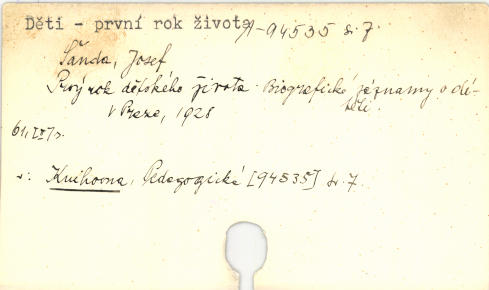 Děti - první rok života A-94535 sv. 7.
Šanda, Josef
Prvý rok dětského života. Biografické záznamy o dí-
těti.
V Praze, 1928
61, IX/7 r.
v: Knihovna, Pedagogická [94535] sv. 7.